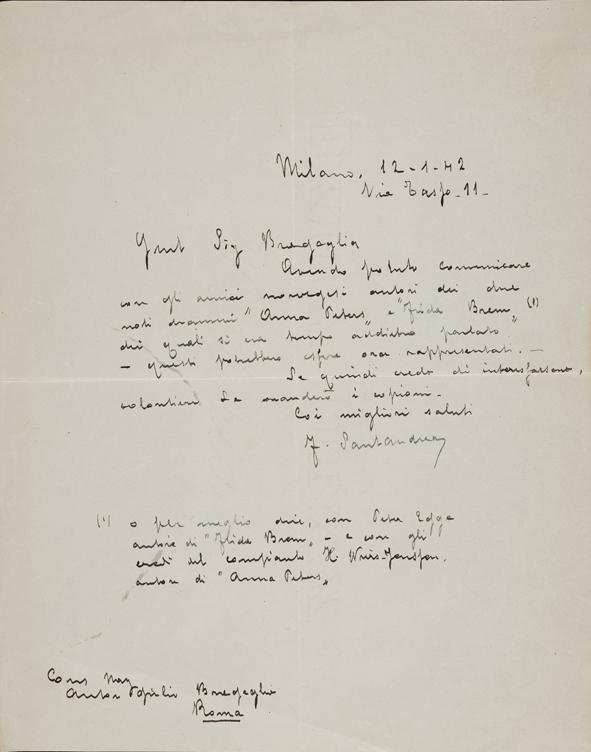 Milano, 12-1-42
Via Tasso - 11 -
Gent Sig Bragaglia
Avendo potuto comunicare
con gli amici norvegesi autori dei due
noti drammi "Anna Peters" e "Frida Brem" (1)
dei quali si era tempo addietro parlato
- questi potrebbero essere ora rappresentati. -
Se quindi crede di interessarsene,
volentieri Le manderò i copioni -
Coi migliori saluti
F. Santandrea
(1) o per meglio dire, con Peter Egge
autore di "Frida Brem" - e con gli
eredi del compianto H Wiers-Jenssen.
autore di "Anna Peters"
Com Mag
Anton Giulio Bragaglia
Roma